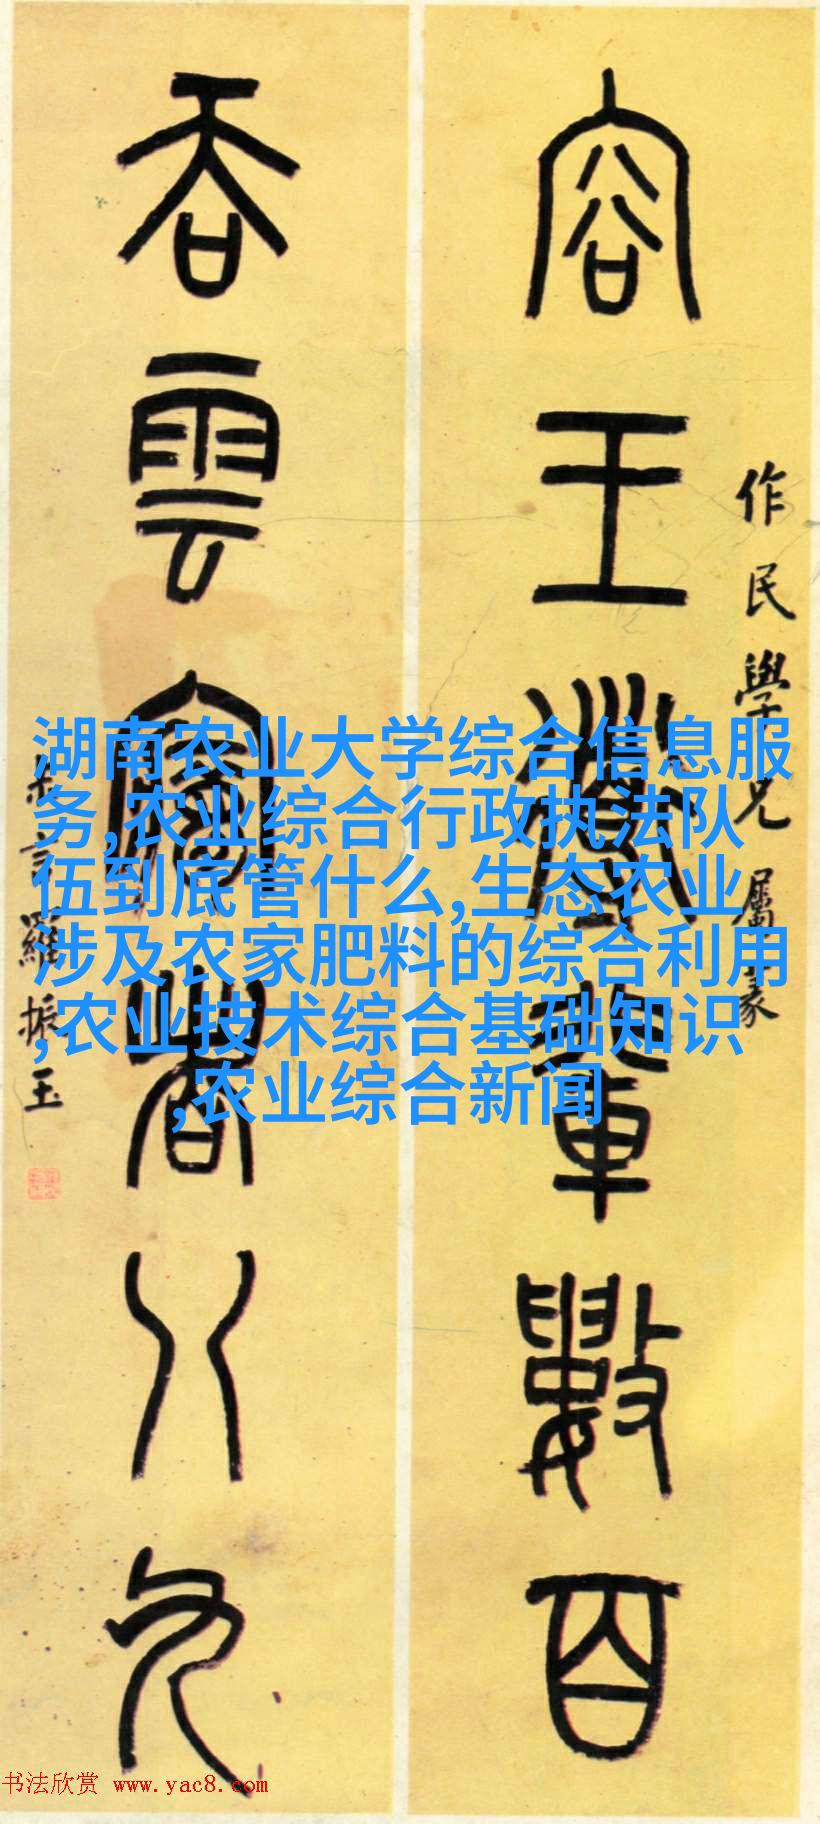 容王導輩數百
作民學兄屬篆
吞雲夢者八九
羅振玉
湖南农业大学综合信息服
务,农业综合行政执法队
伍到底管什么,生态农业
涉及农家肥料的综合利用
,农业技术综合基础知识
,农业综合新闻
书法欣赏 www.yac8.com